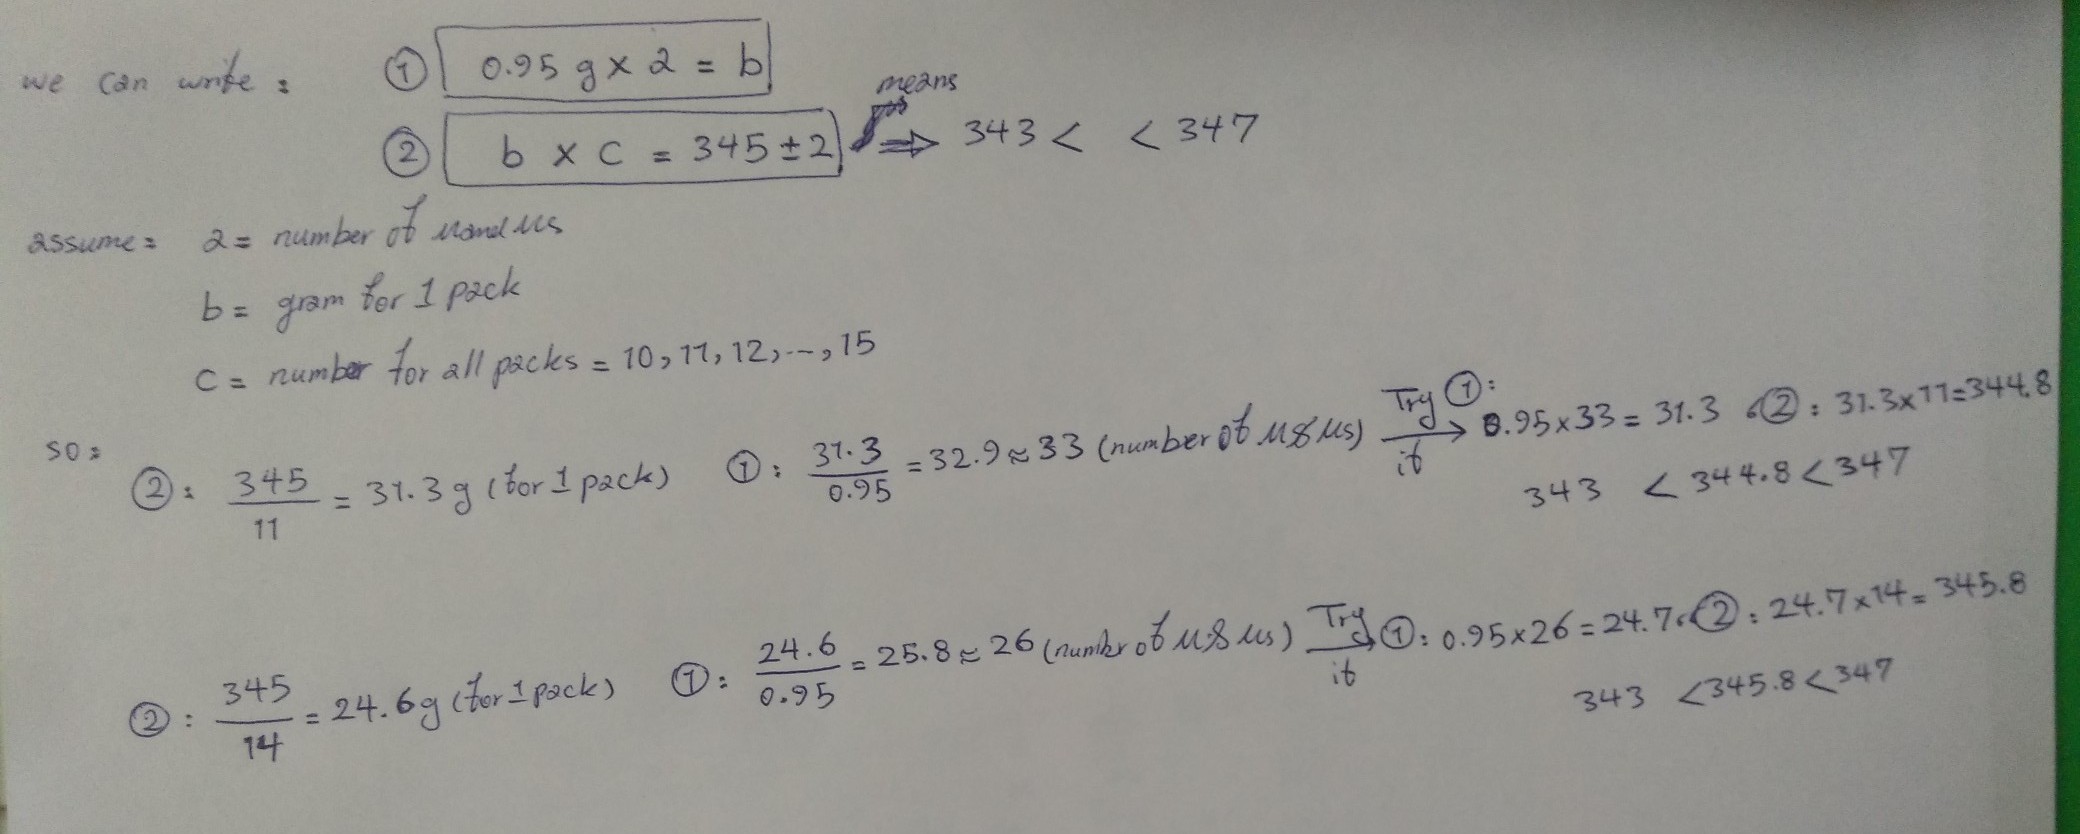 we can write : ① 0.95 g x a = b
② b x c = 345 ± 2 means ⇒ 343 < < 347
assume = a = number of m and ms
b = gram for 1 pack
c = number for all packs = 10, 11, 12, ..., 15
so :
② : 345/11 = 31.3 g (for 1 pack) ① : 31.3/0.95 = 32.9 ≈ 33 (number of m & ms) Try it → ① : 0.95 x 33 = 31.3 ② : 31.3 x 11 = 344.8
343 < 344.8 < 347
② : 345/14 = 24.6 g (for 1 pack) ① : 24.6/0.95 = 25.8 ≈ 26 (number of m & ms) Try it → ① : 0.95 x 26 = 24.7 ② : 24.7 x 14 = 345.8
343 < 345.8 < 347